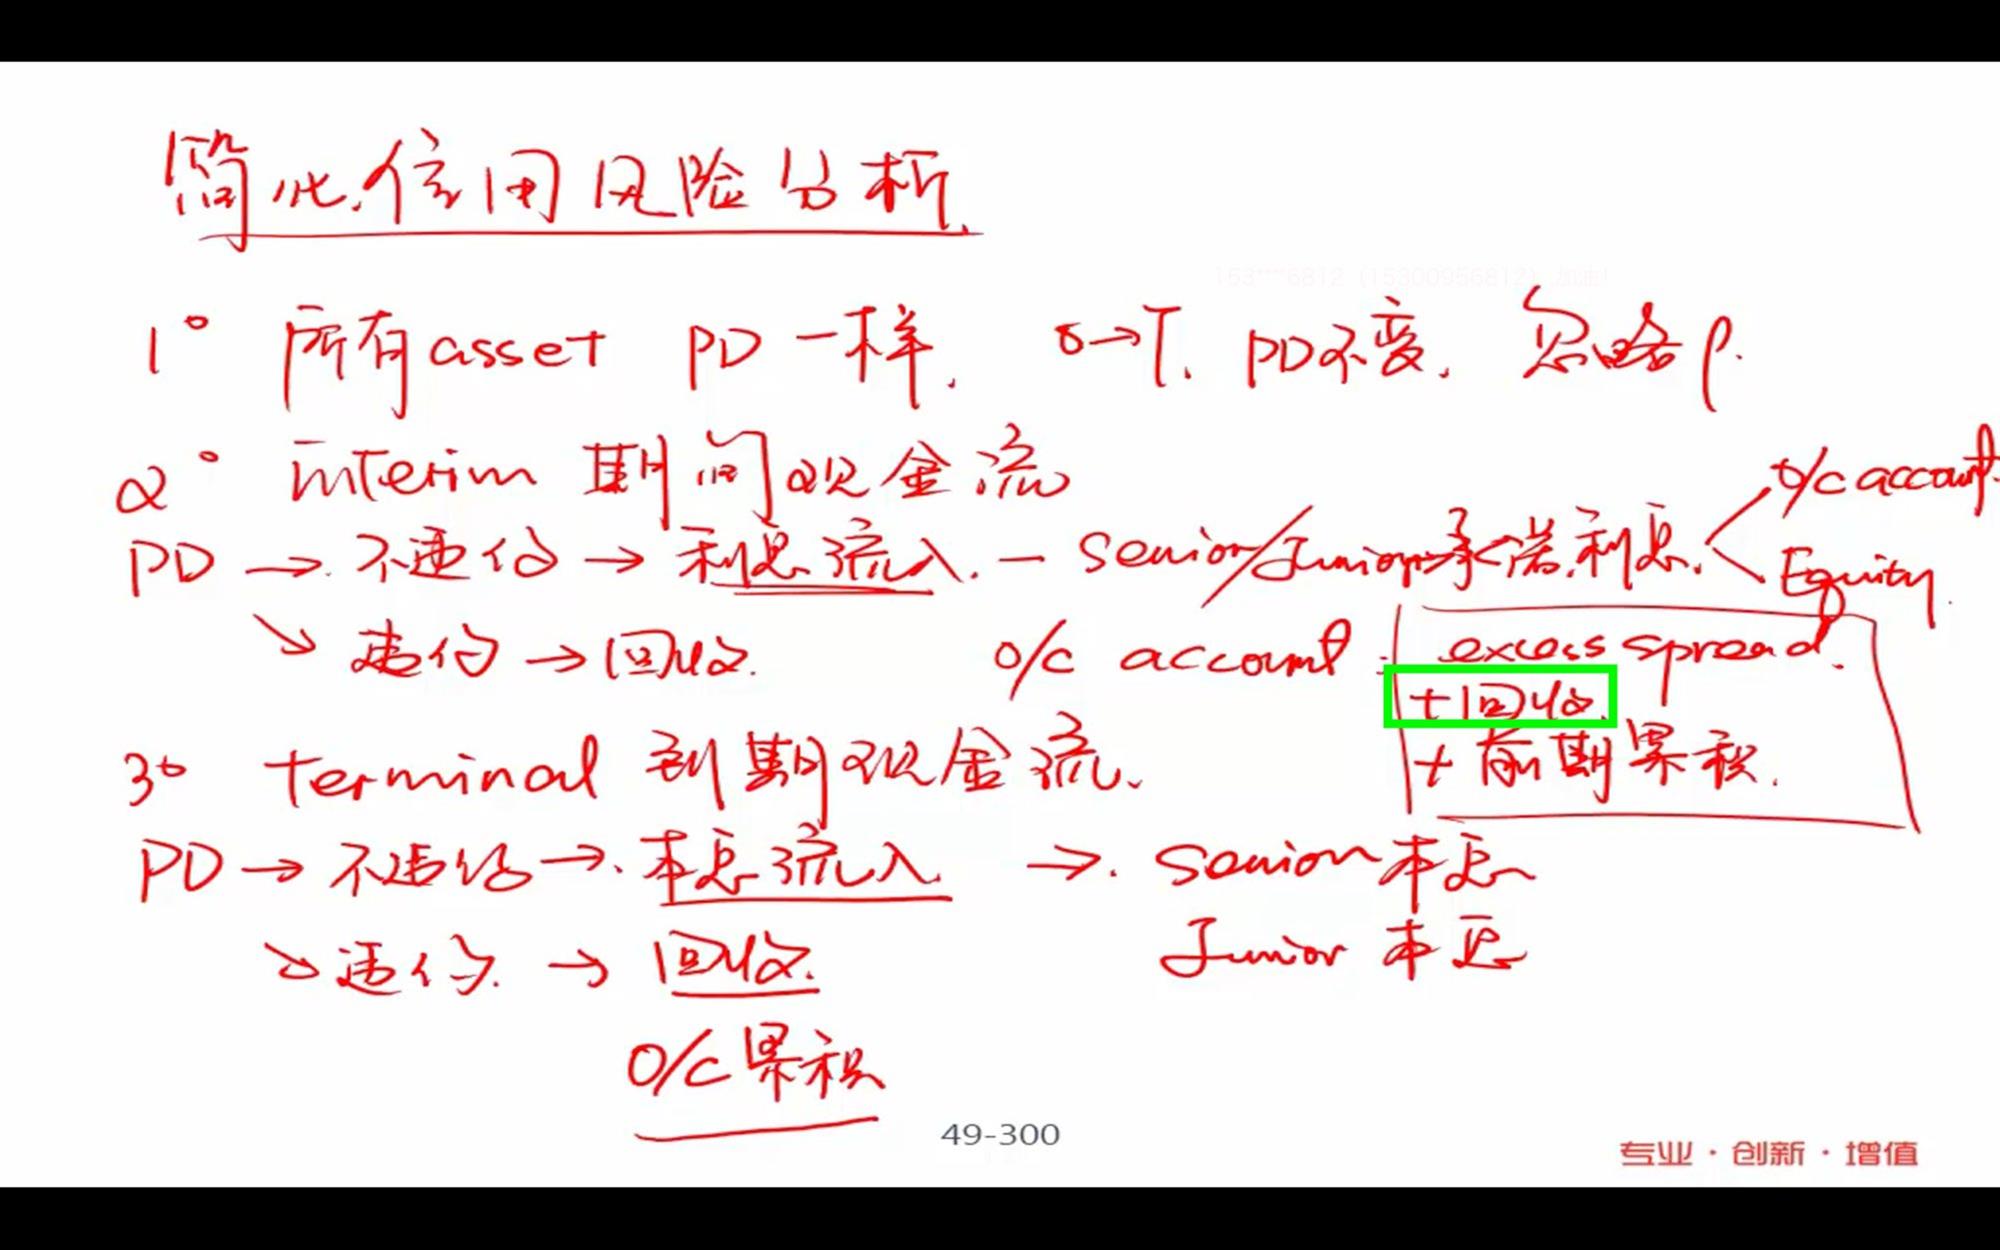 简化信用风险分析
1° 所有asset PD一样. 0→T. PD不变. 忽略ρ.
2° interim 期间现金流
O/C account.
PD → 不违约 → 利息流入. — Senior/Junior承诺利息.
Equity.
↘ 违约 → 回收. O/C account: excess spread.
+回收.
+前期累积.
3° terminal 到期现金流.
PD → 不违约 → 本息流入 → Senior本息
Junior本息
↘ 违约. → 回收.
O/C累积
49-300
专业·创新·增值